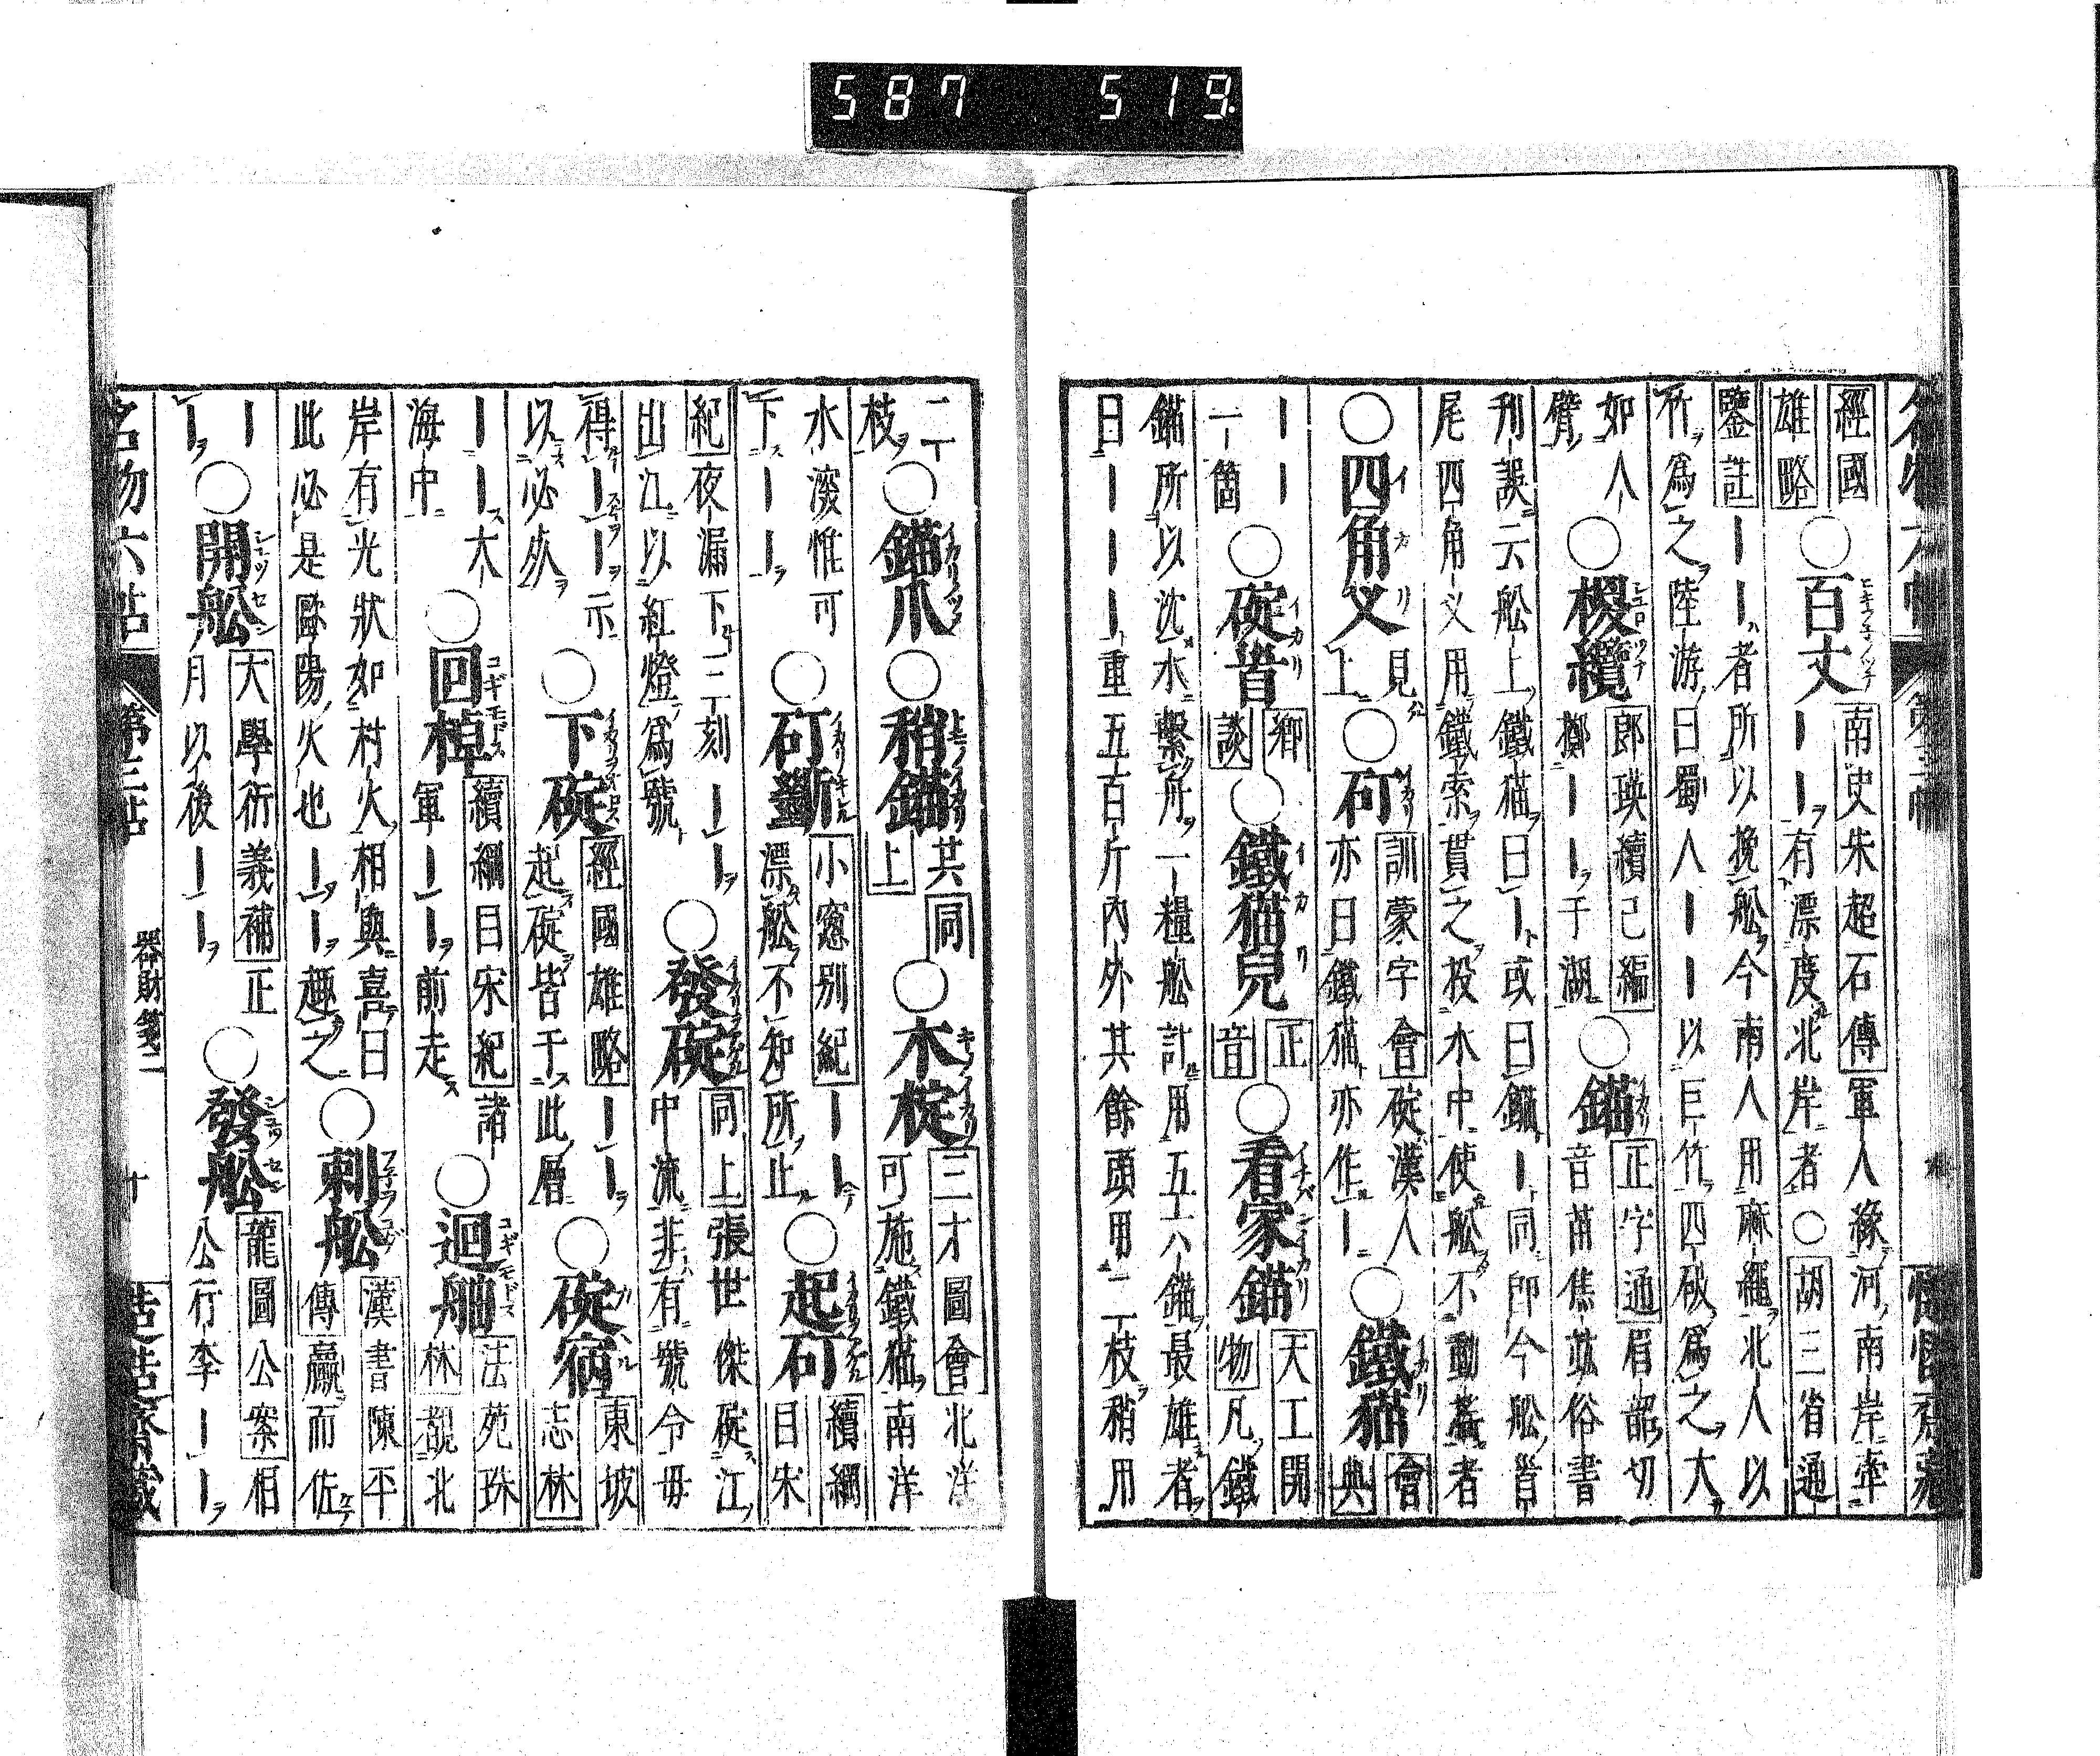 587 519
名物六帖 第三帖
經國
雄略
○百丈
南史朱超石傳軍人緣河南岸牽
ーー有漂度北岸者○胡三省通
鑒註ーー者所以挽船今南人用麻繩北人以
竹爲之陸游曰蜀人ーー以巨竹四破爲之大
如人
臂
○椶纜
郎瑛續己編
擲ーー于湖
○錨
正字通眉韶切
音苗焦竑俗書
刊誤云船上鐵猫曰ー或曰鐺ー同卽今船首
尾四角义用鐵索貫之投水中使船不動蕩者
○四角义
見
上
○矴
訓蒙字會碇漢人
亦曰鐵猫亦作ー
○鐵猫
會
典
ーー
一箇
○碇首
鄉
談
○鐵猫兒
正
音
○看家錨
天工開
物凡鐵
錨所以沈水繫舟一糧船計用五六錨最雄者
曰ーーー重五百斤內外其餘頭用二枝稍用
二
枝
○錨爪
○稍錨
共同
上
○木椗
三才圖會北洋
可施鐵猫南洋
水深惟可
下ーー
○矴斷
小窓别紀ーー
漂船不知所止
○起矴
續綱
目宋
紀夜漏下三刻ーー
出江以紅燈爲號
○發碇
同上張世傑碇江
中流非有號令毋
得ーー示
以必死
○下碇
經國雄略ーー
起碇皆于此層
○碇宿
東坡
志林
ーー大
海中
○回棹
續綱目宋紀諸
軍ーー前走
○迴舳
法苑珠
林覩北
岸有光狀如村火相與喜曰
此必是歐陽火也ーー趣之
○刺船
漢書陳平
傳臝而佐
ー
ー
○開船
大學衍義補正
月以後ーー
○發船
龍圖公案相
公行李ーー
名物六帖 第三帖 器財箋二 十